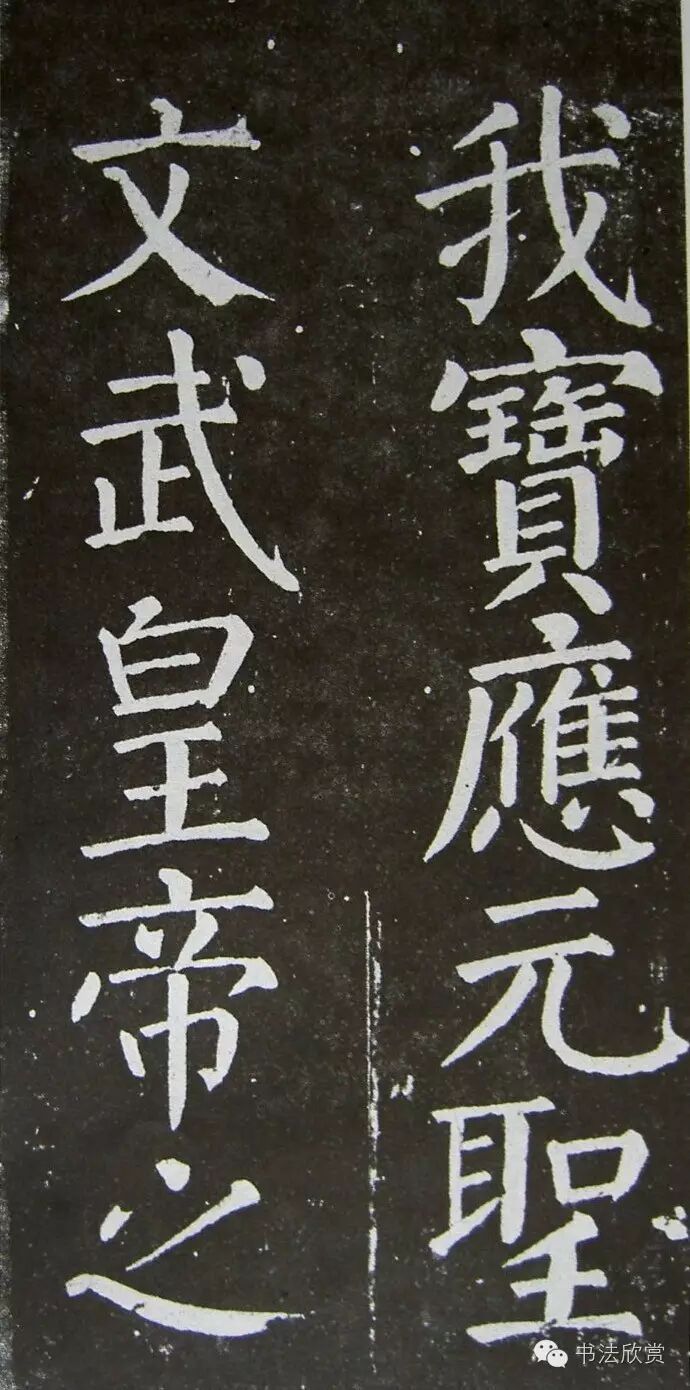 我寶應元聖
文武皇帝之
书法欣赏